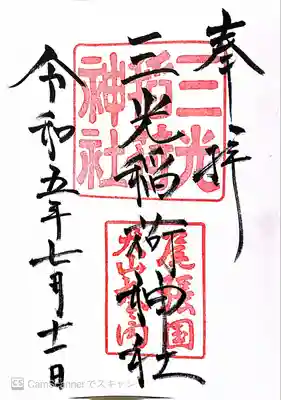 奉拝
三光稲荷神社
令和五年七月十一日
三光
稲荷
神社
尾張国
犬山城内
CS CamScannerでスキャン